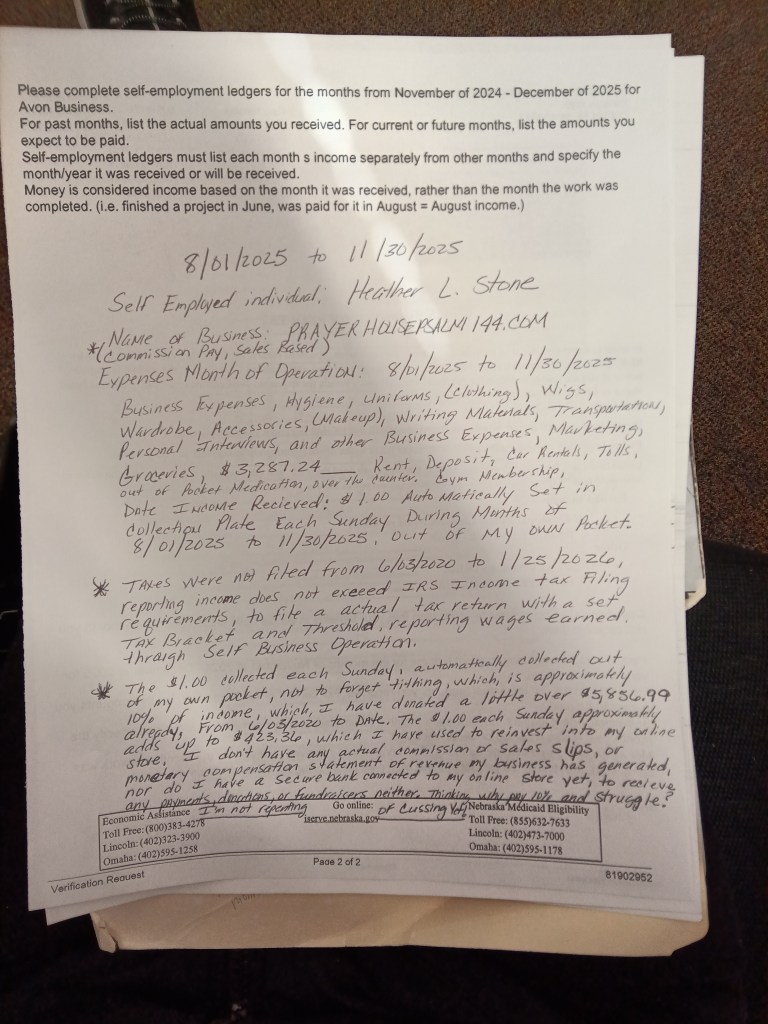 Please complete self-employment ledgers for the months from November of 2024 - December of 2025 for
Avon Business.
For past months, list the actual amounts you received. For current or future months, list the amounts you
expect to be paid.
Self-employment ledgers must list each month s income separately from other months and specify the
month/year it was received or will be received.
Money is considered income based on the month it was received, rather than the month the work was
completed. (i.e. finished a project in June, was paid for it in August = August income.)
8/01/2025 to 11/30/2025
Self Employed individual: Heather L. Stone
* Name of Business: PRAYERHOUSEPSALM144.COM
(Commission Pay, Sales Based)
Expenses Month of Operation: 8/01/2025 to 11/30/2025
Business Expenses, Hygiene, Uniforms, (Clothing), Wigs,
Wardrobe, Accessories, (Makeup), Writing Materials, Transportation,
Personal Interviews, and other Business Expenses, Marketing,
Groceries, $3,287.24 Rent, Deposit, Car Rentals, Tolls,
out of Pocket Medication, over the counter. Gym Membership,
Date Income Recieved: $1.00 Automatically Set in
Collection Plate Each Sunday During Months of
8/01/2025 to 11/30/2025, out of my own Pocket.
* Taxes were not filed from 6/03/2020 to 1/25/2026,
reporting income does not exceed IRS Income tax Filing
requirements, to file a actual tax return with a set
Tax Bracket and Threshold, reporting wages earned.
through Self Business Operation.
* The $1.00 collected each Sunday, automatically collected out
of my own pocket, not to forget tithing, which, is approximately
10% of income, which, I have donated a little over $5,856.99
already, From 6/03/2020 to Date. The $1.00 each Sunday approximately
adds up to $423.36, which I have used to reinvest into my online
store, I don't have any actual commission or sales slips, or
monetary compensation statement of revenue my business has generated,
nor do I have a secure bank connected to my online store yet, to recieve
any payments, donations, or fundraisers neither. Thinking why pay 10% and struggle?
I'm not repenting of cussing yet!
Economic Assistance
Toll Free: (800)383-4278
Lincoln: (402)323-3900
Omaha: (402)595-1258
Go online:
iserve.nebraska.gov
Nebraska Medicaid Eligibility
Toll Free: (855)632-7633
Lincoln: (402)473-7000
Omaha: (402)595-1178
Verification Request
Page 2 of 2
81902952